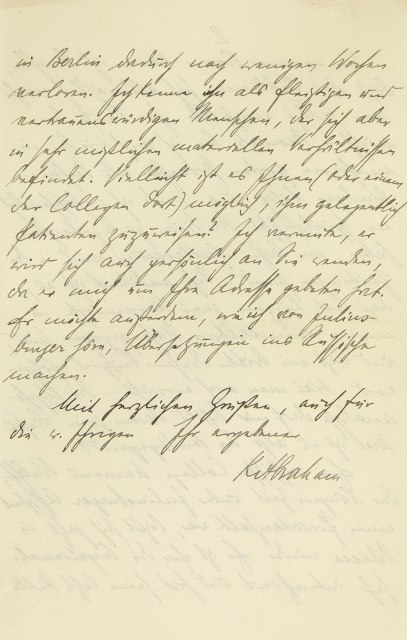 in Berlin dadurch nach wenigen Wochen
verloren. Ich kenne ihn als fleißigen und
vertrauenswürdigen Menschen, der sich aber
in sehr mißlichen materiellen Verhältnissen
befindet. Vielleicht ist es Ihnen (oder einem
der Collegen dort) möglich, ihm gelegentlich
Patienten zuzuweisen? Ich vermute, er
wird sich auch persönlich an Sie wenden,
da er mich um Ihre Adresse gebeten hat.
Er möchte außerdem, wie ich von Julius-
burger höre, Übersetzungen ins Russische
machen.
Mit herzlichen Grüßen, auch für
die w. Ihrigen Ihr ergebener
K Abraham